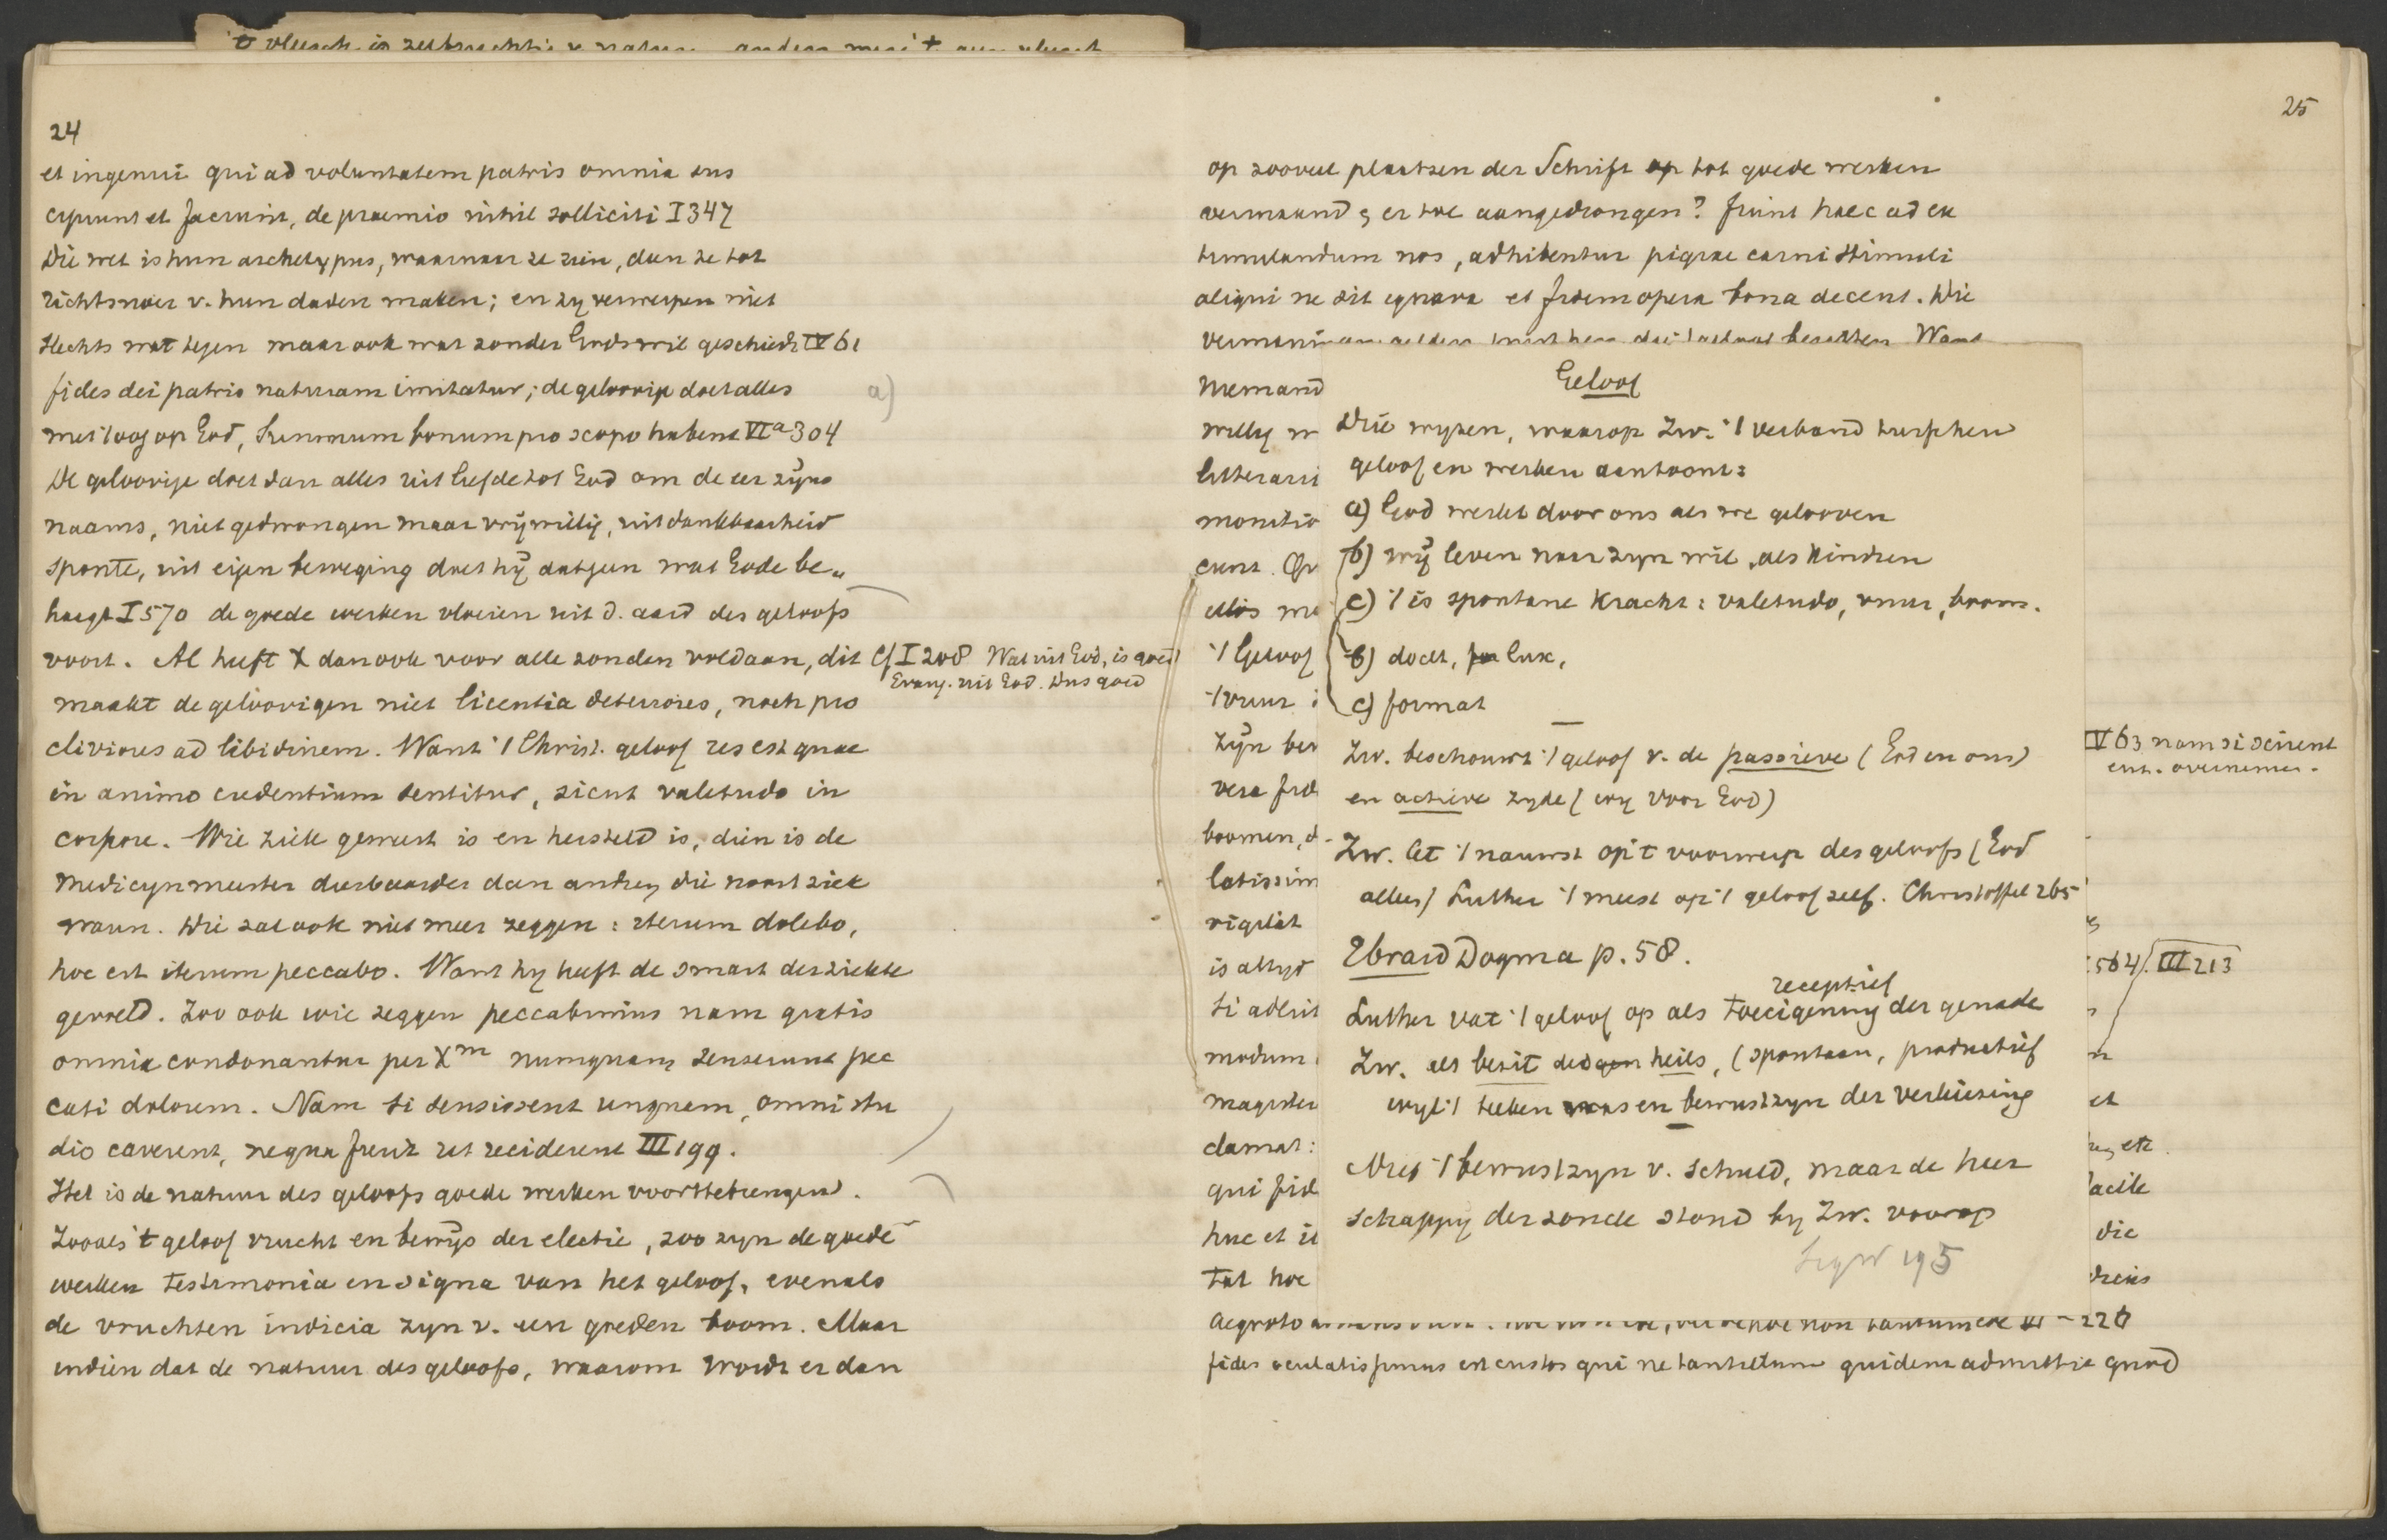 24
et ingenui qui ad voluntatem patris omnia sus
cipiunt et faciunt, de praemio nihil solliciti I 347
Die wet is hun archetypus, waarnaar ze zien, dien ze tot
richtsnoer v. hun daden maken; en zy verwerpen niet
slechts wat tegen maar ook wat zonder Gods wil geschiedt IV 61
fides dei patris naturam imitatur; de geloovige doet alles
a)
met 't oog op God, summum bonum pro scopo habens VIa 304
De geloovige doet dan alles uit liefde tot God om de eer zijns
naams, niet gedwongen maar vrijwillig, uit dankbaarheid
sponte, uit eigen beweging doet hij datgeen wat Gode be„
haagt I 570 de goede werken vloeien uit d. aard des geloofs
voort. Al heeft X dan ook voor alle zonden voldaan, dit
cf I 208 Wat uit God, is goed
Evang. uit God. Dus goed
maakt de geloovigen niet licentia deteriores, noch pro
cliviores ad libidinem. Want 't Christ. geloof res est quae
in animo credentium sentitur, sicut valetudo in
corpore. Wie ziek geweest is en hersteld is, dien is de
medicynmeester dierbaarder dan andren die nooit ziek
waren. Die zal ook niet meer zeggen: iterum dolebo,
hoc est iterum peccabo. Want hy heeft de smart der ziekte
gevoeld. Zoo ook wie zeggen peccabimus nam gratis
omnia condonantur per Xm numquam senserunt pec
cati dolorem. Nam si sensissent unquam, omni stu
dio caverent, ne qua fieret ut reciderent III 199.
Het is de natuur des geloofs goede werken voorttebrengen.
Zooals 't geloof vrucht en bewijs der electie, zoo zyn de goede
werken testimonia en signa van het geloof, evenals
de vruchten indicia zyn v. een goeden boom. Maar
indien dat de natuur des geloofs, waarom wordt er dan
25
op zooveel plaatsen der Schrift op tot goede werken
vermaand & er toe aangedrongen? fiunt haec ad ex
timulandum nos, adhibentur pigrae carni stimuli
aliqui ne sit ignava et fidem opera bona decent. Die
niemand
willig
monitio
't Geloof
't vuur
zijn
vera
boomen,
latissim
vigilat
is altyd
modum
magister
clamat:
qui
huc et
tat hoc
aegroto
Geloof
Drie wyzen, waarop Zw. 't verband tusschen
geloof en werken aantoont:
a) God werkt door ons als we gelooven
b) wij leven naar zyn wil, als kindren
c) 't is spontane kracht: valetudo, vuur, boom.
b) docet, lux,
c) format
Zw. beschouwt 't geloof v. de passieve (God en ons)
en actieve zyde (wy voor God)
Zw. let 't nauwst op 't voorwerp des geloofs (God
alles) Luther 't meest op 't geloof zelf. Christoffel 265
Ebrard Dogma p. 58.
receptief
Luther vat 't geloof op als toeeigening der genade
Zw. als bezit des heils, (spontaan, productief
wyl 't teeken was en bewustzyn der verkiezing
Niet 't bewustzyn v. schuld, maar de heer
schappy der zonde stond by Zw. voorop
195
IV 63 nam si scirent
enz. overnemen.
564). III 213
et
etc
facile
die
226
fides oculatissimus est custos qui ne tantillum quidem admittit quod